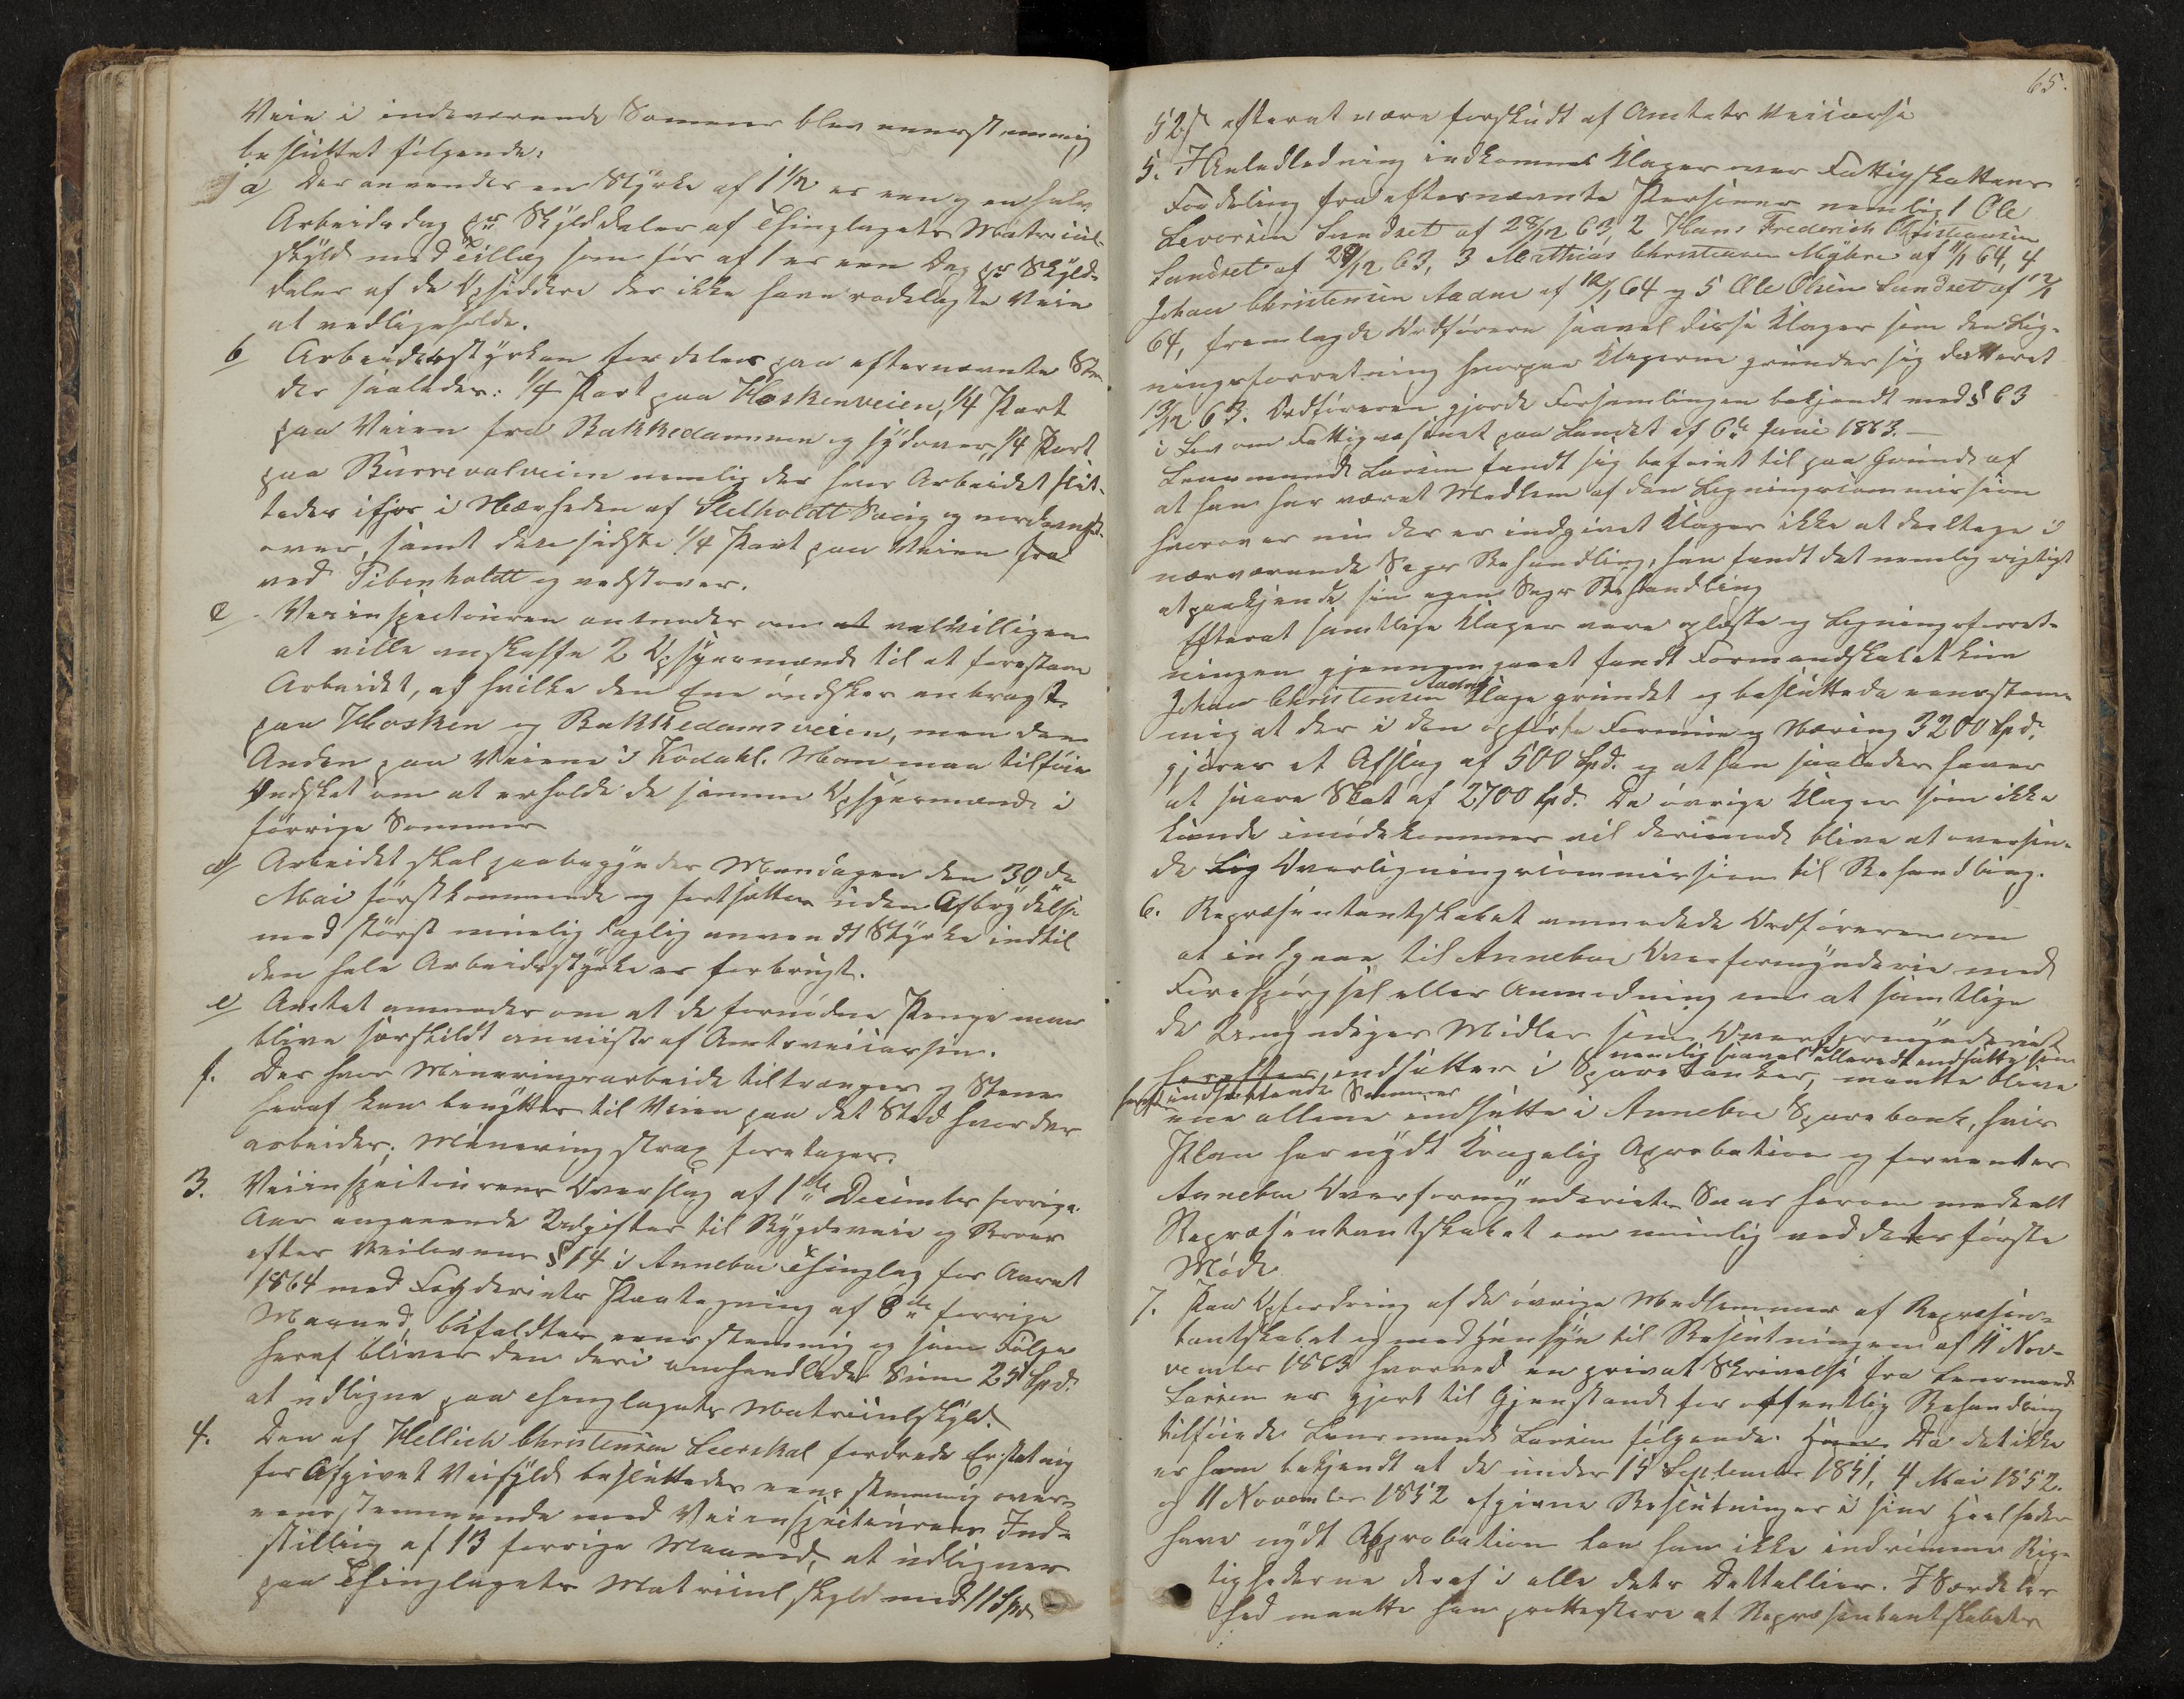 Veie i indeværende Sommer blev eenstemmig
besluttet følgende:
a Der anvendes en Styrke af 1 1/2 er een og en halv
Arbeidsdag pr Skylddaler af Thinglagets Matricul-
skyld med Tillæg som før af 1 er een Dag pr Skyld-
daler af de Opsiddere der ikke have rodelagte Veie
at vedligeholde.
b Arbeidsstyrken fordeles paa efternævnte Ste-
der saaledes: 1/4 Part paa Høskenveien, 1/4 Part
paa Veien fra Bakkedammen og sydover, 1/4 Part
paa Burrevalveien nemlig der hvor Arbeidet slut-
tedes ifjor i Nærheden af Skelholdt
over, samt den sidste 1/4 Part paa Veien fra
ved Pibenholdt og vedstover.
c Veiinspecteuren anmodes om at velvilligen
at ville anskaffe 2 Opsynsmænd til at forestaae
Arbeidet, af hvilke den Ene ønskes anbragt
paa Høsken og Bakkedamsveien, men den
Anden paa Veiene i Kodahl. Man maa tilføie
Ønsket om at erholde de samme Opsynsmænd i
forrige Sommer
d Arbeidet skal paabegyndes Mandagen den 30de
Mai førstkommende og fortsættes uden Afbrydelse
med størst muelig daglig anvendt Styrke indtil
den hele Arbeidsstyrke er forbrugt.
e Amtet anmodes om at de fornødne Penge maa
blive forskudt anviiste af Amtsveicassen.
f. Der hvor Mineringsarbeide tiltrænges og Stene
heraf kan benyttes til Veien paa det Sted hvor der
arbeides, Minering strax foretages.
3. Veiinspecteurens Overslag af 1ste December forrige
Aar angaaende Udgifter til Bygdeveie og Broer
efter Veilovens § 14 i Anneboe Thinglag for Aaret
1864 med Fogderiets Paategning af 8de forrige
Maaned, bifaldtes eenstemmig og som Følge
heraf bliver den deri omhandlede Sum 25 Spd.
at udligne paa Thinglagets Matriculskyld.
4. Den af Hellich Christensen Leerskal fordrede Erstatning
for Afgivet Veifyld besluttedes eenstemmig over-
eensstemmende med Veiinspecteurens Ind-
stilling af 13 forrige Maaned, at udlignes
paa Thinglagets Matriculskyld med 11 Spd
65.
52 ß efterat være forskudt af Amtets Veicasse
5. I Anledledning indkomne Klager over Fattigskattens
Fordeling fra efternævnte Personer nemlig 1 Ole
Leversen Sundset af 28/12 63, 2 Hans Frederich Christiansen
Sundset af 29/12 63, 3 Mathias Christensen Myhre af 11/1 64, 4
Johan Christensen Aadne af 12/1 64 og 5 Ole Olsen Sundset af 12/1
64, fremlagde Ordføreren saavel disse Klager som den Lig-
ningsforretning hvorpaa Klagerne grunder sig datteret
13/12 63. Ordføreren gjorde Forsamlingen bekjendt med § 63
i Lov om Fattigvæsenet paa Landet af 6te Juni 1863.
Lensmand Larsen fandt sig beføiet til paa Grund af
at han har været Medlem af den Ligningscommission
hvorover nu der er indgivet Klager ikke at deeltage i
nærværende Sags Behandling, han fandt det nemlig rigtigst
at paakjende sin egen Sags Behandling
Efterat samtlige Klager vare oplæste og Ligningsforret-
ningen gjennemgaaet fandt Formandskabet kun
Johan Christensen Aadnes Klage grundet og besluttede eenstem-
mig at der i den opførte Formue og Næring 3200 Spd.
gjøres et Afslag af 500 Spd. og at han saaledes haver
at svare Skat af 2700 Spd. De øvrige Klager som ikke
kunde imødekommes vil derimod blive at oversen-
de Lig Overligningscommissionen til Behandling.
6. Repræsentantskabet anmodede Ordføreren om
at indgaae til Anneboe Overformynderie med
Forespørgsel eller Anmodning om at samtlige
de Umyndiges Midler som Overformynderiet
herefter, indsætter i Sparebanker, nemlig saavel allerede indsatte som
herefter indsættende Summer maatte blive
ene allene indsatte i Anneboe Sparebank, hvis
Plan har nydt Kongelig Aprobation og forventes
Anneboe Overformynderiets Svar herom meddelt
Repræsentantskabet om muelig ved dets første
Møde
7. Paa Opfordring af de øvrige Medlemmer af Repræsen-
tantskabet og med Hensyn til Beslutningen af 11 Nov-
vember 1863 hvorved en privat Skrivelse fra Lensmand
Larsen er gjort til Gjenstand for offentlig Behandling
tilføiede Lensmand Larsen følgende. Han Da det ikke
er ham bekjendt at de under 15 September 1851, 4 Mai 1852.
og 11 November 1852 afgivne Beslutninger i sine Heelheder
have nydt Approbation kan han ikke indrømme Rig-
tighederne deraf i alle dets Dettallier. I Særdeles
hed maatte han prottestere at Repræsentantskabets